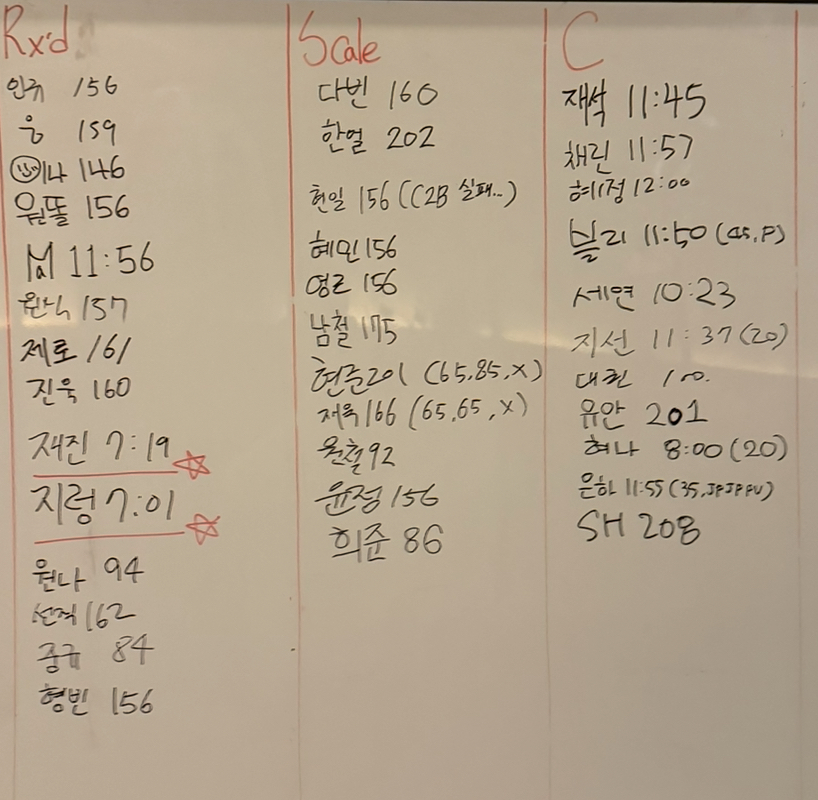 Rx'd
인규 156
웅 159
나 146
원똘 156
M 11:56
원식 157
제로 161
진욱 160
재진 7:19
지렁 7:01
원나 94
선직 162
중규 84
형빈 156
Scale
다빈 160
한얼 202
현일 156 (C2B 실패..)
혜민 156
영근 156
남철 175
현준 201 (65,85,X)
재욱 166 (65,65,X)
원철 92
윤정 156
희준 86
C
재석 11:45
채린 11:57
혜정 12:00
블리 11:50 (45,P)
세연 10:23
지선 11:37 (20)
대현
유안 201
혀나 8:00 (20)
은하 11:55 (35, JPJPPU)
SH 208